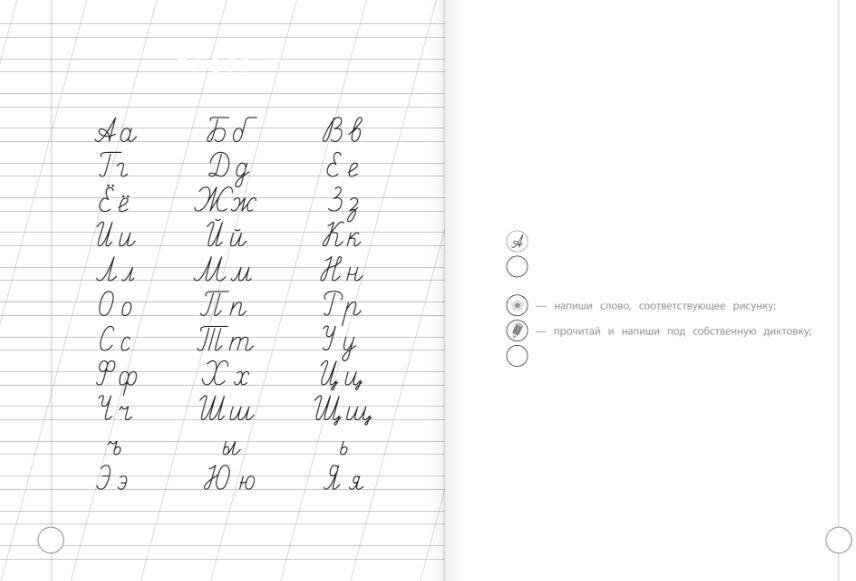 Аа Бб Вв
Гг Дд Ее
Ёё Жж Зз
Ии Йй Кк
Лл Мм Нн
Оо Пп Рр
Сс Тт Уу
Фф Хх Цц
Чч Шш Щщ
ъ ы ь
Ээ Юю Яя
А
— напиши слово, соответствующее рисунку;
— прочитай и напиши под собственную диктовку;